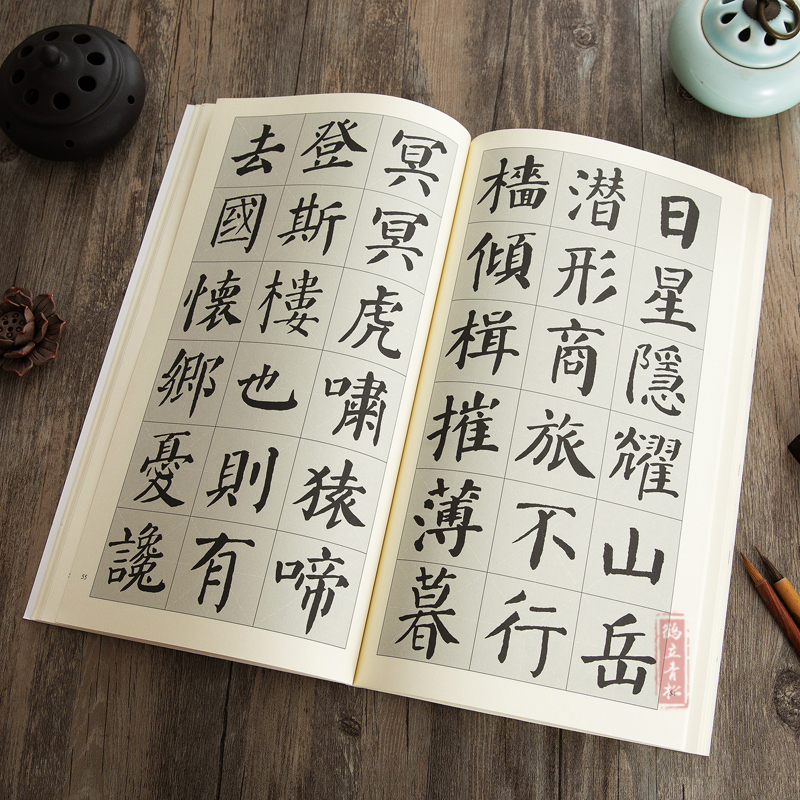 日星隱耀山岳
潛形商旅不行
檣傾楫摧薄暮
冥冥虎嘯猿啼
登斯樓也則有
去國懷鄉憂讒
53
鶴立青松